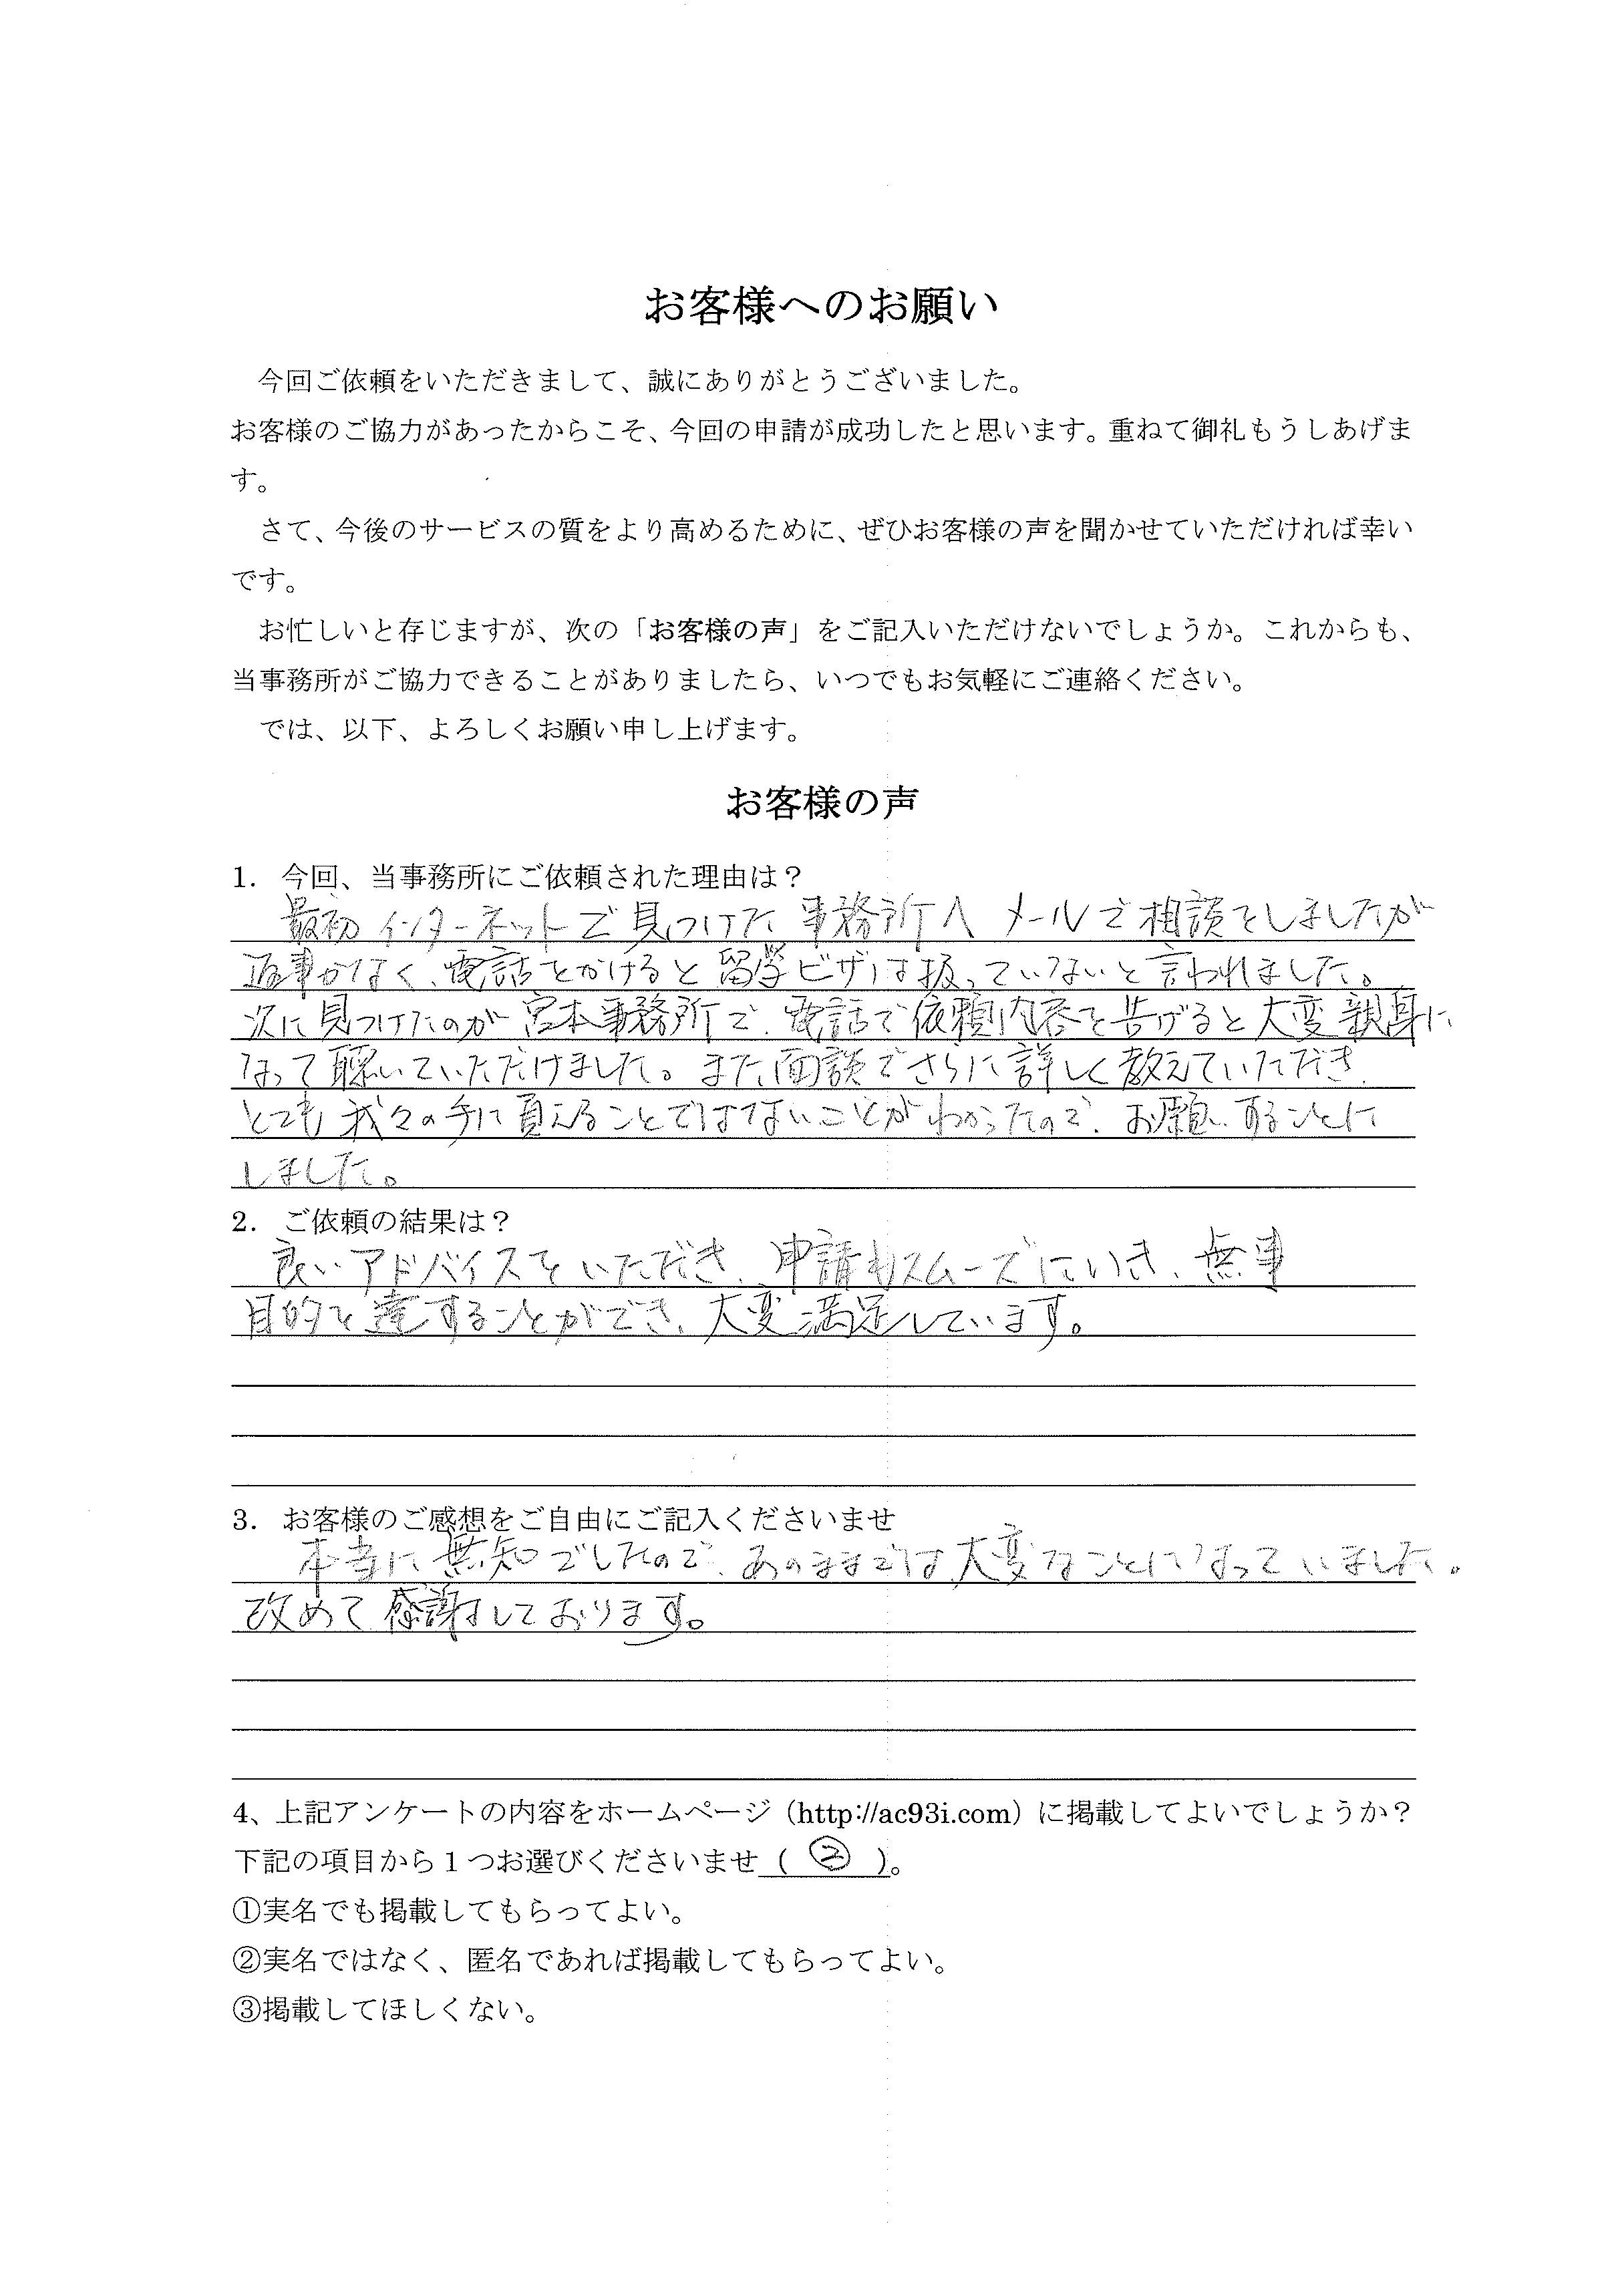 お客様へのお願い
今回ご依頼をいただきまして、誠にありがとうございました。
お客様のご協力があったからこそ、今回の申請が成功したと思います。重ねて御礼もうしあげま
す。
さて、今後のサービスの質をより高めるために、ぜひお客様の声を聞かせていただければ幸い
です。
お忙しいと存じますが、次の「お客様の声」をご記入いただけないでしょうか。これからも、
当事務所がご協力できることがありましたら、いつでもお気軽にご連絡ください。
では、以下、よろしくお願い申し上げます。
お客様の声
1. 今回、当事務所にご依頼された理由は？
最初インターネットで見つけた事務所へメールで相談をしましたが
返事がなく、電話をかけると留学ビザは扱っていないと言われました。
次に見つけたのが宮本事務所で、電話で依頼内容を告げると大変親身に
なって聴いていただけました。また、面談でさらに詳しく教えていただき、
とても我々の手に負えることではないことがわかったので、お願いすることに
しました。
2. ご依頼の結果は？
良いアドバイスをいただき、申請もスムーズにいき、無事
目的を達することができ、大変満足しています。
3. お客様のご感想をご自由にご記入くださいませ
本当に無知でしたので、あのままでは大変なことになっていました。
改めて感謝しております。
4、上記アンケートの内容をホームページ（http://ac93i.com）に掲載してよいでしょうか？
下記の項目から１つお選びくださいませ（ ② ）。
①実名でも掲載してもらってよい。
②実名ではなく、匿名であれば掲載してもらってよい。
③掲載してほしくない。